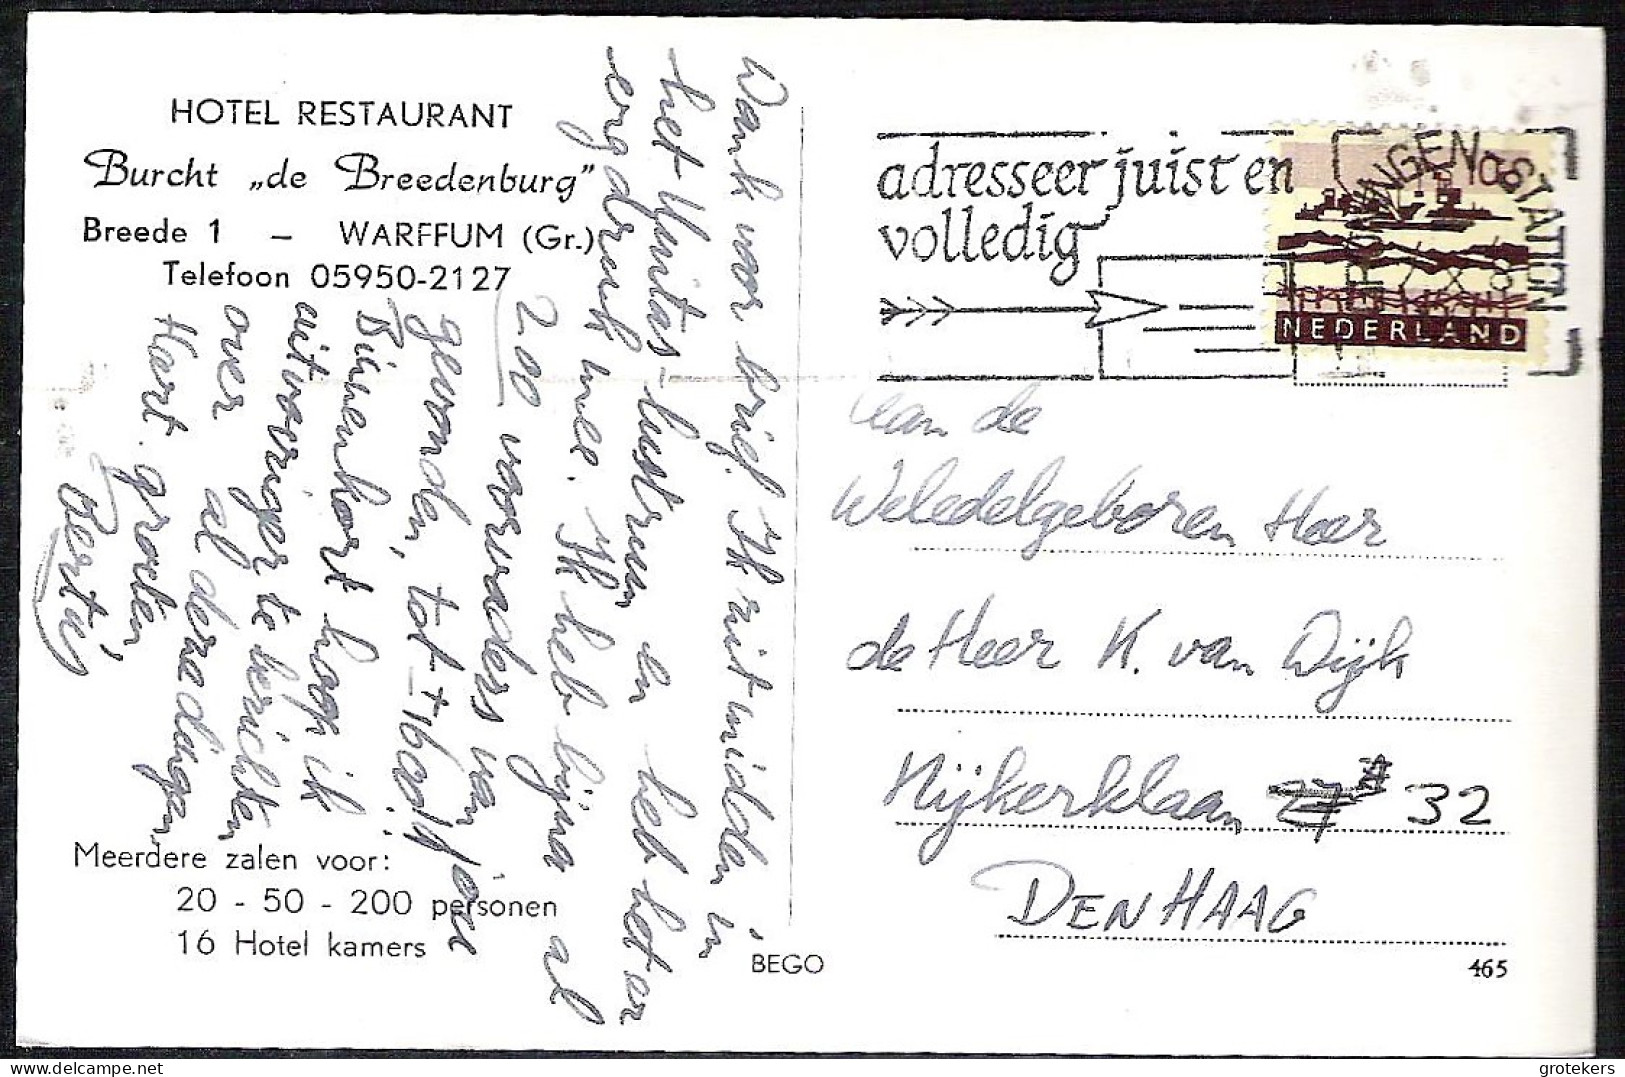 HOTEL RESTAURANT
Burcht „de Breedenburg”
Breede 1 — WARFFUM (Gr.)
Telefoon 05950-2127
Dank voor brief. Ik zit midden in
het Unitas-lustrum en heb het er
erg druk mee. Ik heb bijna al
200 voorvaders van jou
gevonden, tot ± 1600!!
Binnenkort hoop ik
uitvoeriger te berichten
over al deze dingen,
Hart. groeten,
Bertus
Meerdere zalen voor:
20 - 50 - 200 personen
16 Hotel kamers
BEGO
adresseer juist en
volledig
GRONINGEN STATION
NEDERLAND
Aan de
Weledelgeboren Heer
de Heer K. van Dijk
Nijkerklaan 32
DEN HAAG
465
delcampe.net
grotekers